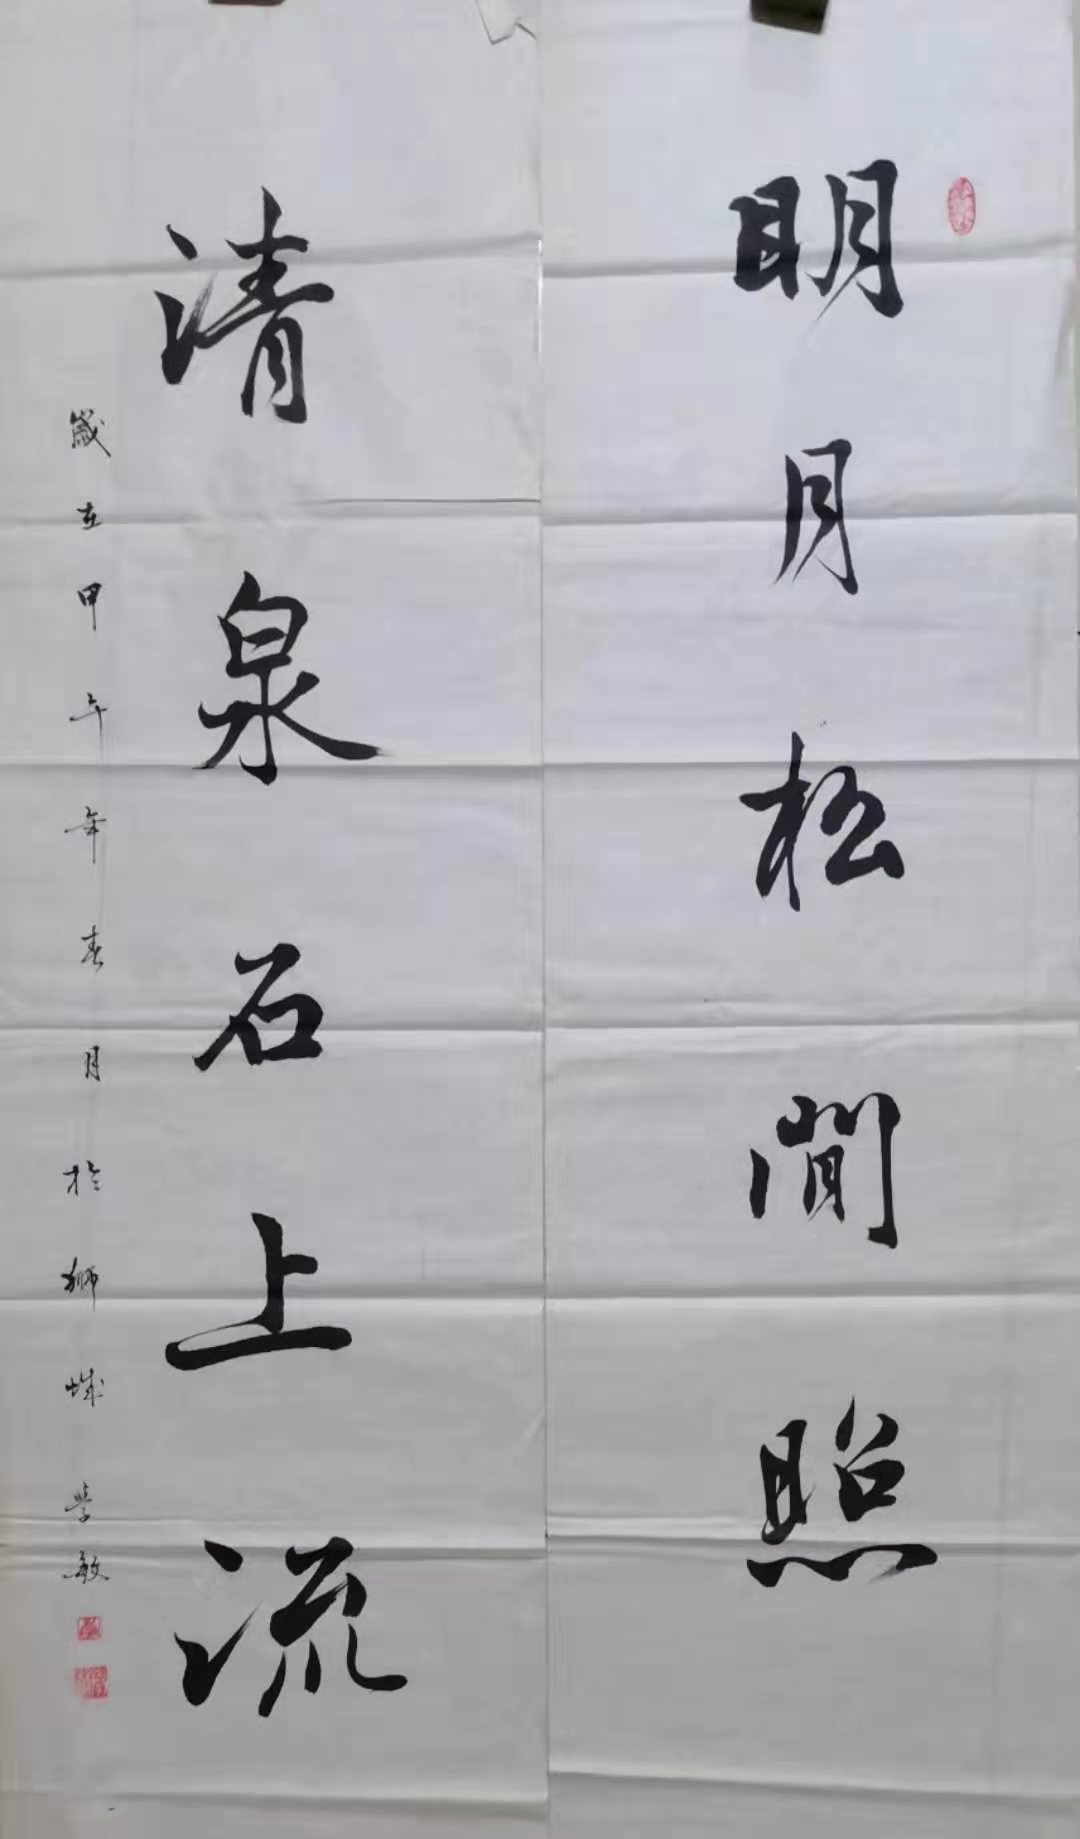 明月松間照
清泉石上流
歲在甲午年春月於獅城學敏